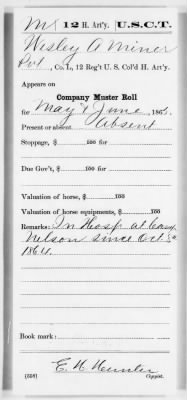 M | 12 H. Art'y. | U.S.C.T.
Wesley A Miner
Pvt, Co. L, 12 Reg't U. S. Col'd H. Art'y.
Appears on
Company Muster Roll
for May & June, 1865.
Present or absent Absent
Stoppage, $ 100 for
Due Gov't, $ 100 for
Valuation of horse, $ 100
Valuation of horse equipments, $ 100
Remarks: In Hosp at Camp
Nelson since Oct 5th
1864.
Book mark:
(358)
Copyist.